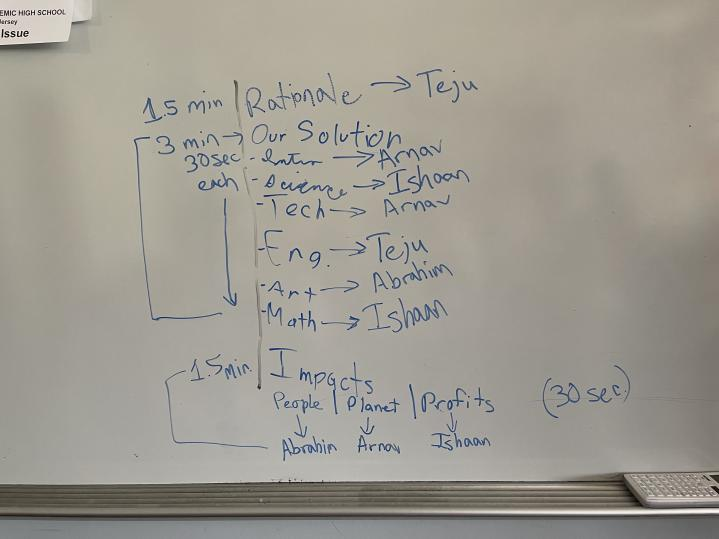 EMIC HIGH SCHOOL
Jersey
Issue
1.5 min | Rationale → Teju
3 min → Our Solution
30 sec - Intro → Arnav
each - Science → Ishaan
- Tech → Arnav
- Eng. → Teju
- Art → Abrahim
- Math → Ishaan
1.5 min. | Impacts
People | Planet | Profits (30 sec.)
↓ ↓ ↓
Abrahim Arnav Ishaan